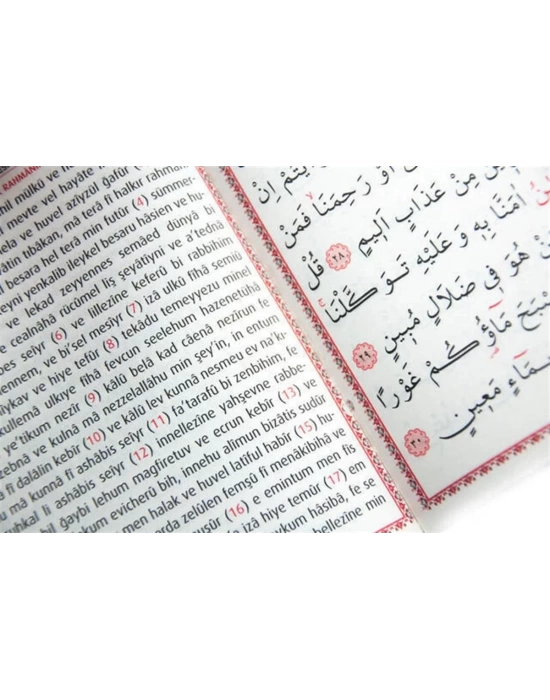 RAHMAN
mil mülkü ve
meyte vel hayâte
ve huvel azîyzül gafûr
tibâkan, mâ terâ fî halkır rahman
besara hel terâ min futûr (4) sümmer-
yenkalib ileykel besaru hâsien ve hu-
ve lekad zeyyennes semâed dünyâ bi
cealnâhâ rücûmel liş şeyâtîyni ve a'tednâ
seîyr (6) ve lillezîne keferû bi rabbihim
ve bi'sel mesîyr (7) izâ ulkû fîhâ semiû
ve hiye tefûr (8) tekâdu temeyyezu minel
ulkıye fîhâ fevcun seelehum hazenetühâ
nezîr (9) kâlû belâ kad câenâ nezîrun fe
ve kulnâ mâ nezzelallâhu min şey'in, in entum
fî dalâlin kebîr (10) ve kâlû lev kunnâ nesmeu ev na'k-
mâ kunnâ fî ashâbis seîyr (11) fa'terafû bi zenbihim, fe
suhkal li ashâbis seîyr (12) innellezîne yahşevne rabbe-
bil ğaybi lehum mağfiretuv ve ecrun kebîr (13) ve
evicherû bih, innehu alîmun bizâtis sudûr
men halak ve huvel latîful habîr (15) hu-
arda zelûlen femşû fî menâkibihâ ve
(16) e emintum men fis
izâ hiye temûr (17) em
aleykum hâsibâ, fe se
bellezîne min
اَوْ رَحِمَنَاۙ فَمَنْ
مِنْ عَذَابٍ اَل۪يمٍ ﴿٢٨﴾ قُلْ
اٰمَنَّا بِه۪ وَعَلَيْهِ تَوَكَّلْنَاۚ
هُوَ ف۪ي ضَلَالٍ مُب۪ينٍ ﴿٢٩﴾
مَٓاؤُ۬كُمْ غَوْرًا
مَع۪ينٍ ﴿٣٠﴾